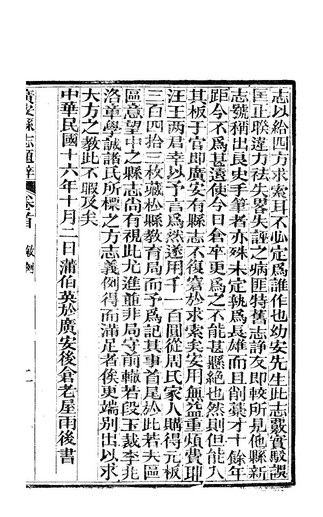 志以給四方求索且不必定爲誰作也幼安先生此志覈實駁誤
匡正聯違力祛失畧失誣之病匪特舊志諍友即較所見他縣新
志號稱出良史手筆者亦殊未定孰爲長雄而且削藁才十餘年
距今不爲甚遠使今日倉卒更爲之能不能甚懸絕也然則但能入
其板于官即廣安有縣志不復窘於求索矣安用無益重煩費耶
汪王两君幸以予言爲然遂用千一百圓從周氏家人購得元板
三百四拾三枚藏松縣教育局而予爲記其事首尾於此若夫區
區意望中之縣志尚有視此尤進並非局守前轍若段玉裁李兆
洛章學誠諸氏所標之方志義例得而滿足者俟更端別出以求
大方之教此不暇及矣
中華民國十六年十月二日蒲伯英於廣安後倉老屋雨後書
廣安縣志 卷首
二